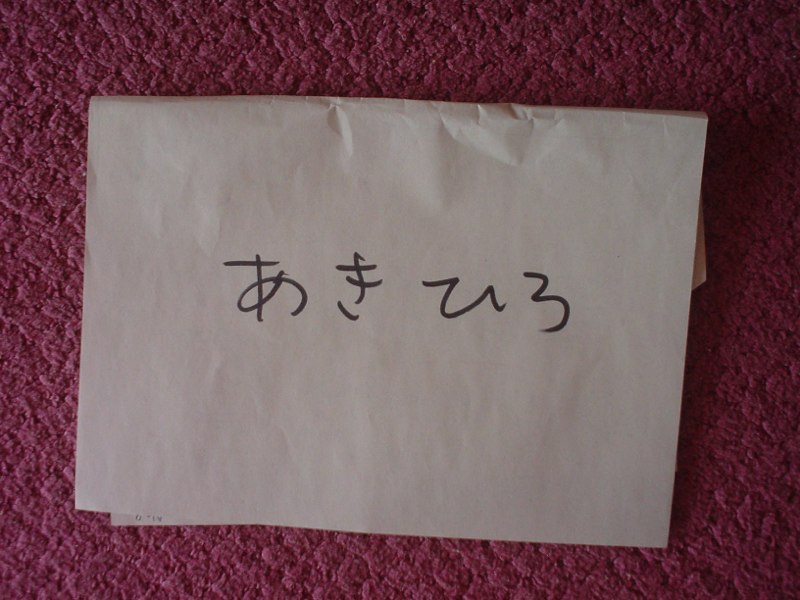 あきひろ